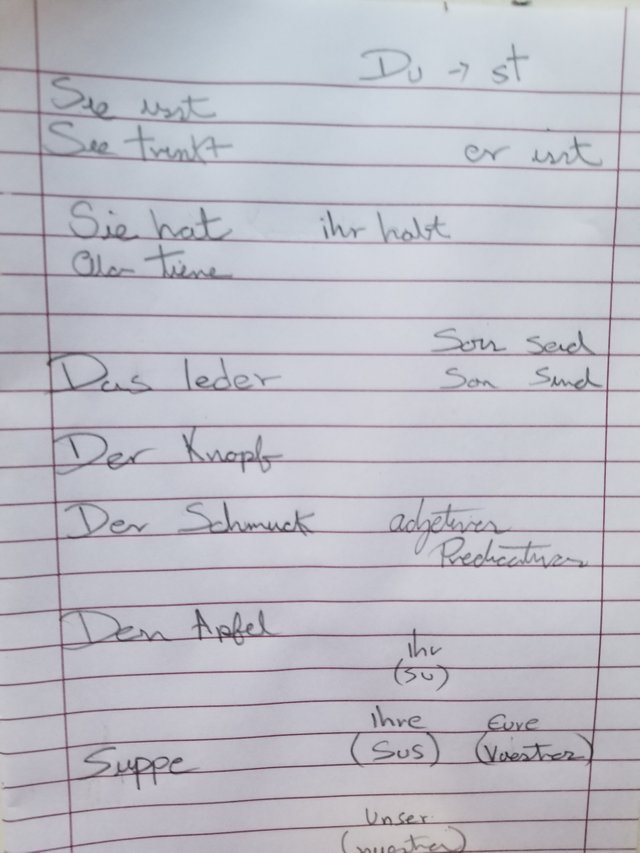 Du → st
Sie isst
See trinkt er isst
Sie hat ihr habt
tiene
Son seid
Das leder Son Sind
Der Knopf
Der Schmuck adjetivos
Predicativos
Den Apfel
ihr
(SU)
ihre Eure
Suppe (SUS) (Vuestra)
Unser
(nuestra)